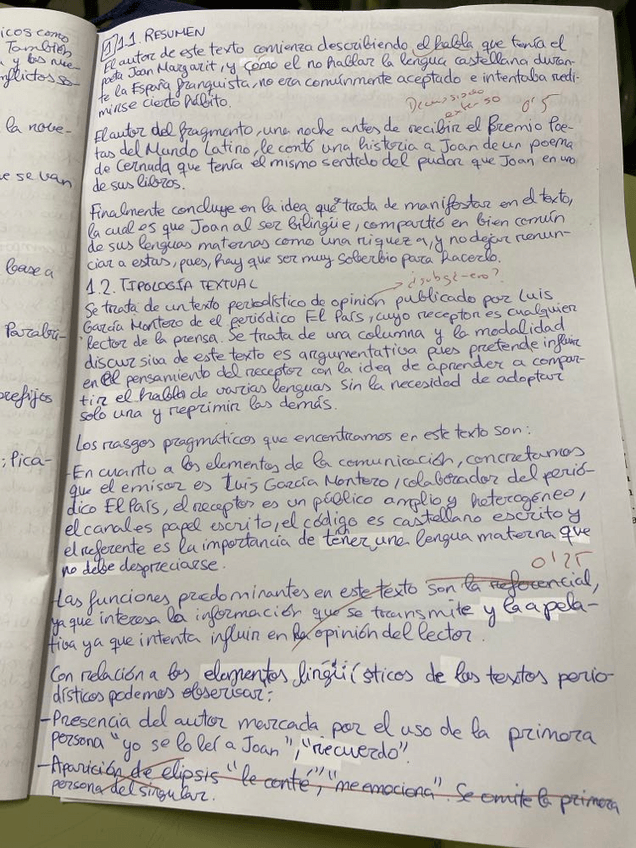 icos como
También
a y los nue-
nflictos so-
la nove-
e se van
base a
Parabrí-
prefijos
; Pica-
1 1.1. RESUMEN
El autor de este texto comienza describiendo el habla que tenía el
poeta Joan Margarit, y como el no hallar la lengua castellana duran-
te la España franquista, no era comúnmente aceptado e intentaba redi-
mirse cierto hábito.
Demasiado
extenso
0'5
El autor del fragmento, una noche antes de recibir el Premio Poe-
tas del Mundo Latino, le contó una historia a Joan de un poema
de Cernuda que tenía el mismo sentido del pudor que Joan en uno
de sus libros.
Finalmente concluye en la idea que trata de manifestar en el texto,
la cual es que Joan al ser bilingüe, compartió en bien común
de sus lenguas maternas como una riqueza, y no dejar renun-
ciar a estas, pues, hay que ser muy soberbio para hacerlo.
1.2. TIPOLOGÍA TEXTUAL
¿subgénero?
Se trata de un texto periodístico de opinión publicado por Luis
García Montero de el periódico El País, cuyo receptor es cualquier
lector de la prensa. Se trata de una columna y la modalidad
discursiva de este texto es argumentativa pues pretende influir
en el pensamiento del receptor con la idea de aprender a compar-
tir el habla de varias lenguas sin la necesidad de adoptar
solo una y reprimir las demás.
Los rasgos pragmáticos que encontramos en este texto son:
-En cuanto a los elementos de la comunicación, concretamos
que el emisor es Luis García Montero, colaborador del perió-
dico El País, el receptor es un público amplio y heterogéneo,
el canal es papel escrito, el código es castellano escrito y
el referente es la importancia de tener una lengua materna que
no debe despreciarse.
0'25
-Las funciones predominantes en este texto son la referencial,
ya que interesa la información que se transmite y la apela-
tiva ya que intenta influir en la opinión del lector.
Con relación a los elementos lingüísticos de los textos perio-
dísticos podemos observar:
-Presencia del autor marcada por el uso de la primera
persona "yo se lo leí a Joan", "recuerdo".
-Aparición de elipsis "le conté", "me emociona". Se omite la primera
persona del singular.